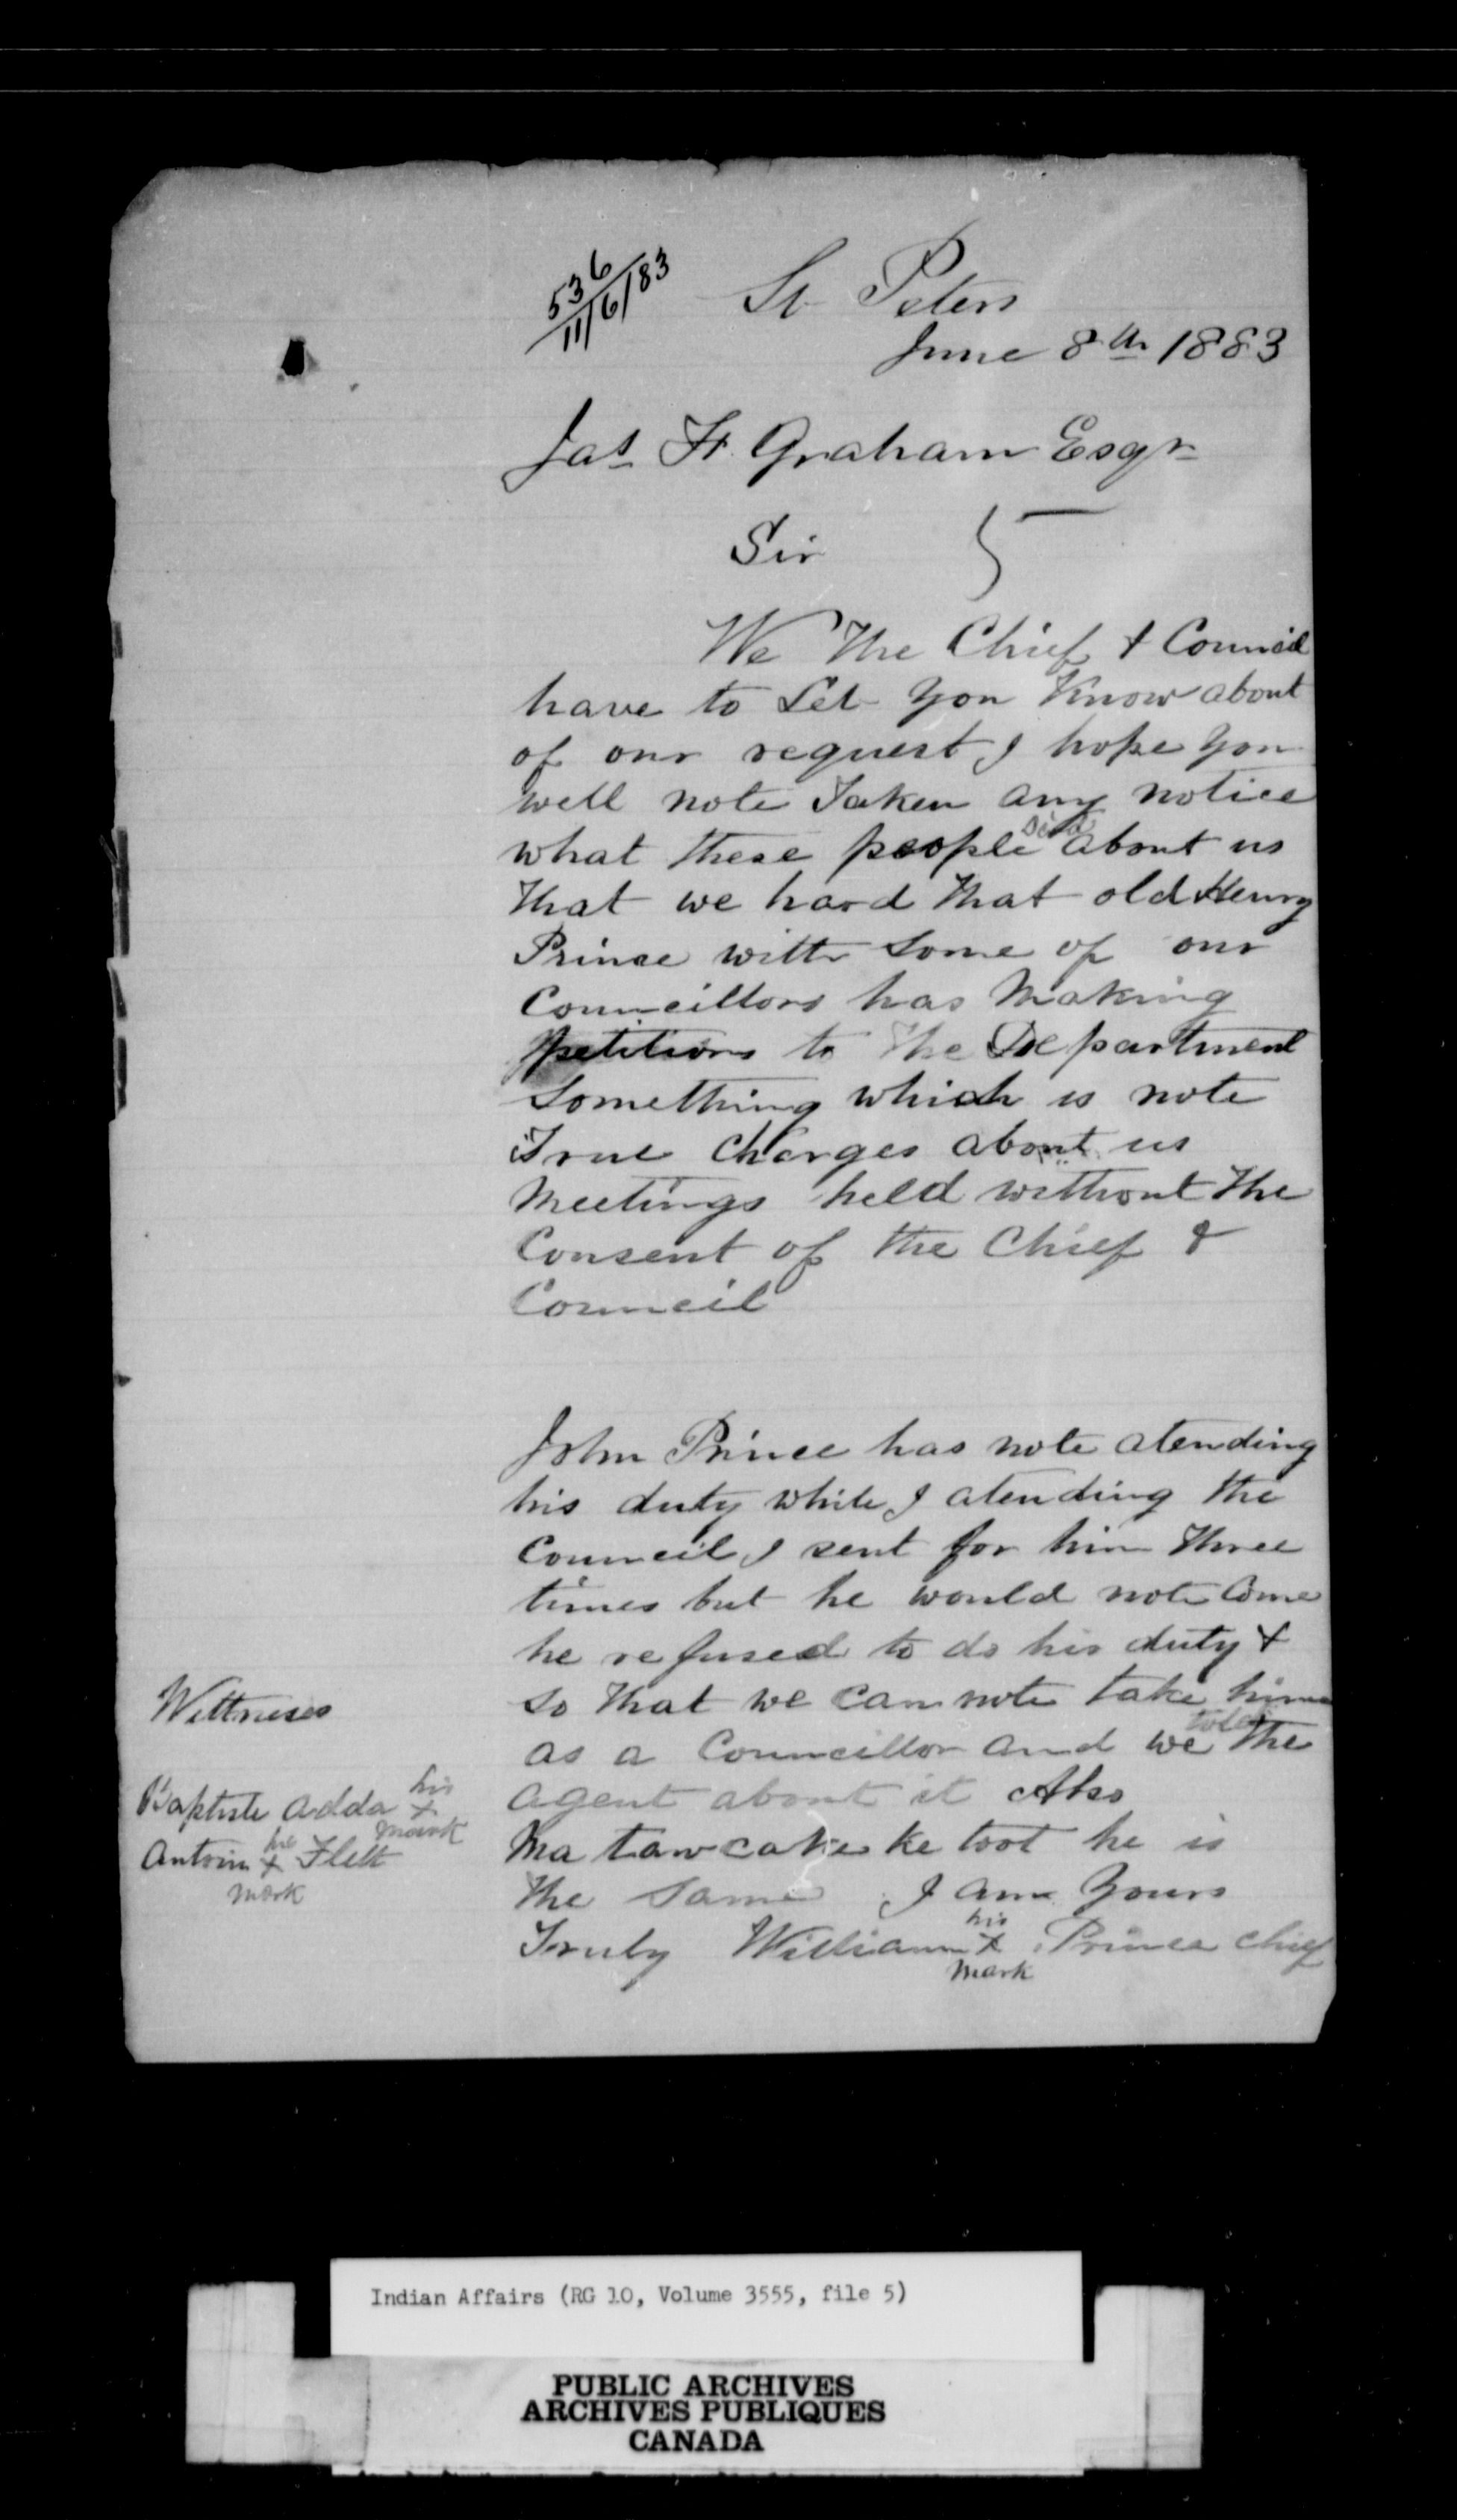 536
11/6/83
St Peters
June 8th 1883
Jas F. Graham Esqr
Sir
We the Chief & Council
have to Let you Know about
of our request I hope you
well note Taken any notice
what these people said about us
that we hard that old Henry
Prince with some of our
Councillors has Making
petitions to the Department
Something which is note
True Charges about us
Meetings held without the
Consent of the Chief &
Council
John Prince has note atending
his duty while I atending the
Council I sent for him three
times but he would note Come
he refused to do his duty &
so that we can note take him
as a Councillor and we told the
agent about it Also
Ma taw cake ke toot he is
the Same I am Yours
Truly William his x mark Prince Chief
Wittneses
Baptiste Adda his x mark
Antoin his x mark Flett
Indian Affairs (RG 10, Volume 3555, file 5)
PUBLIC ARCHIVES
ARCHIVES PUBLIQUES
CANADA